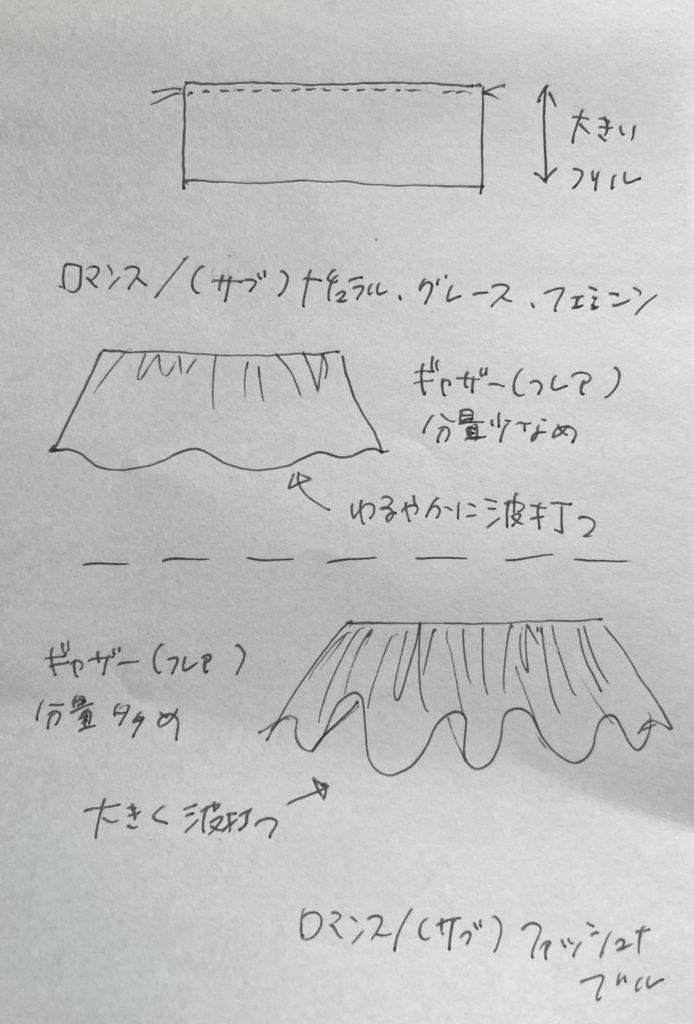 大きい
フリル
ロマンス/(サブ)ナチュラル、グレース、フェミニン
ギャザー(フレア)
分量少なめ
ゆるやかに波打つ
ギャザー(フレア)
分量多め
大きく波打つ
ロマンス/(サブ)ファッショナ
ブル